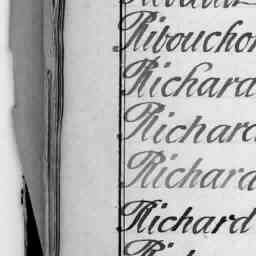 Ribouchon
Richard
Richard
Richard
Richard